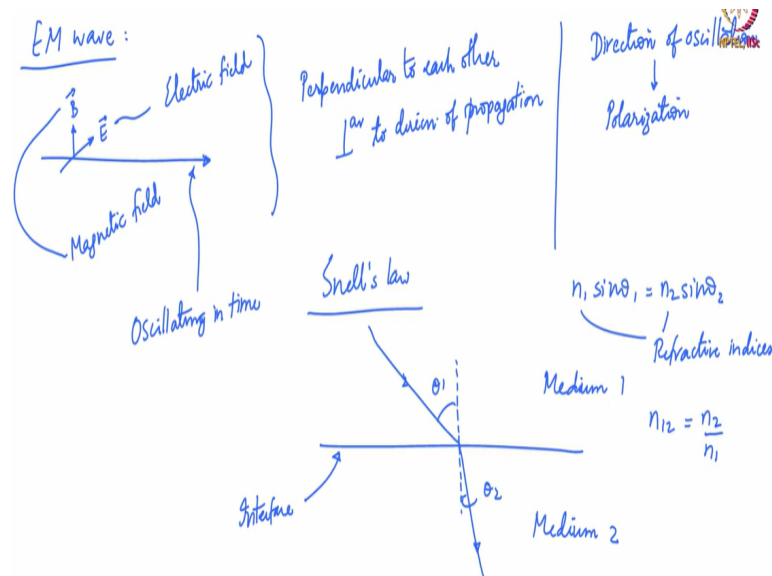 EM wave :
B
E
Electric field
Magnetic field
Oscillating in time
Perpendicular to each other
⊥ar to of propagation
Direction of oscillation
↓
Polarization
NPTEL, IISc
Snell's law
n1 sinθ1 = n2 sinθ2
Refractive indices
θ1
Medium 1
n12 = n2/n1
Interface
θ2
Medium 2